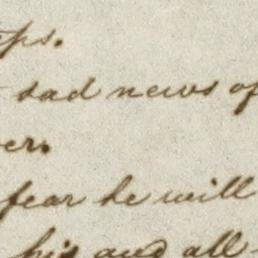 sad news of
fear he will
his and all